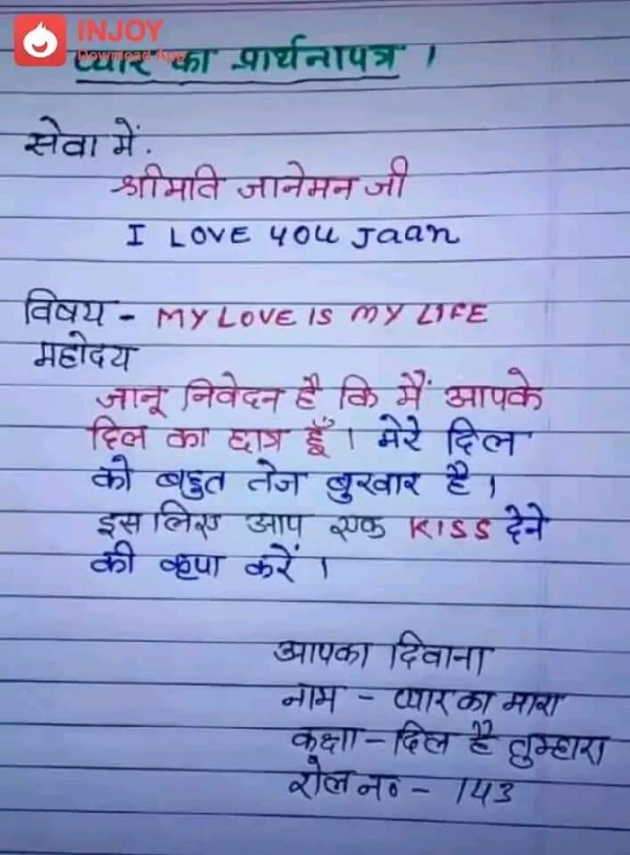 INJOY
Download App
प्यार का प्रार्थनापत्र ।
सेवा में.
श्रीमति जानेमन जी
I LOVE YOU Jaan
विषय - MY LOVE IS MY LIFE
महोदय
जानू निवेदन है कि मैं आपके
दिल का छात्र हूँ । मेरे दिल
को बहुत तेज बुखार है ।
इसलिए आप एक KISS देने
की कृपा करें ।
आपका दिवाना
नाम - प्यार का मारा
कक्षा - दिल है तुम्हारा
रोल न० - 143